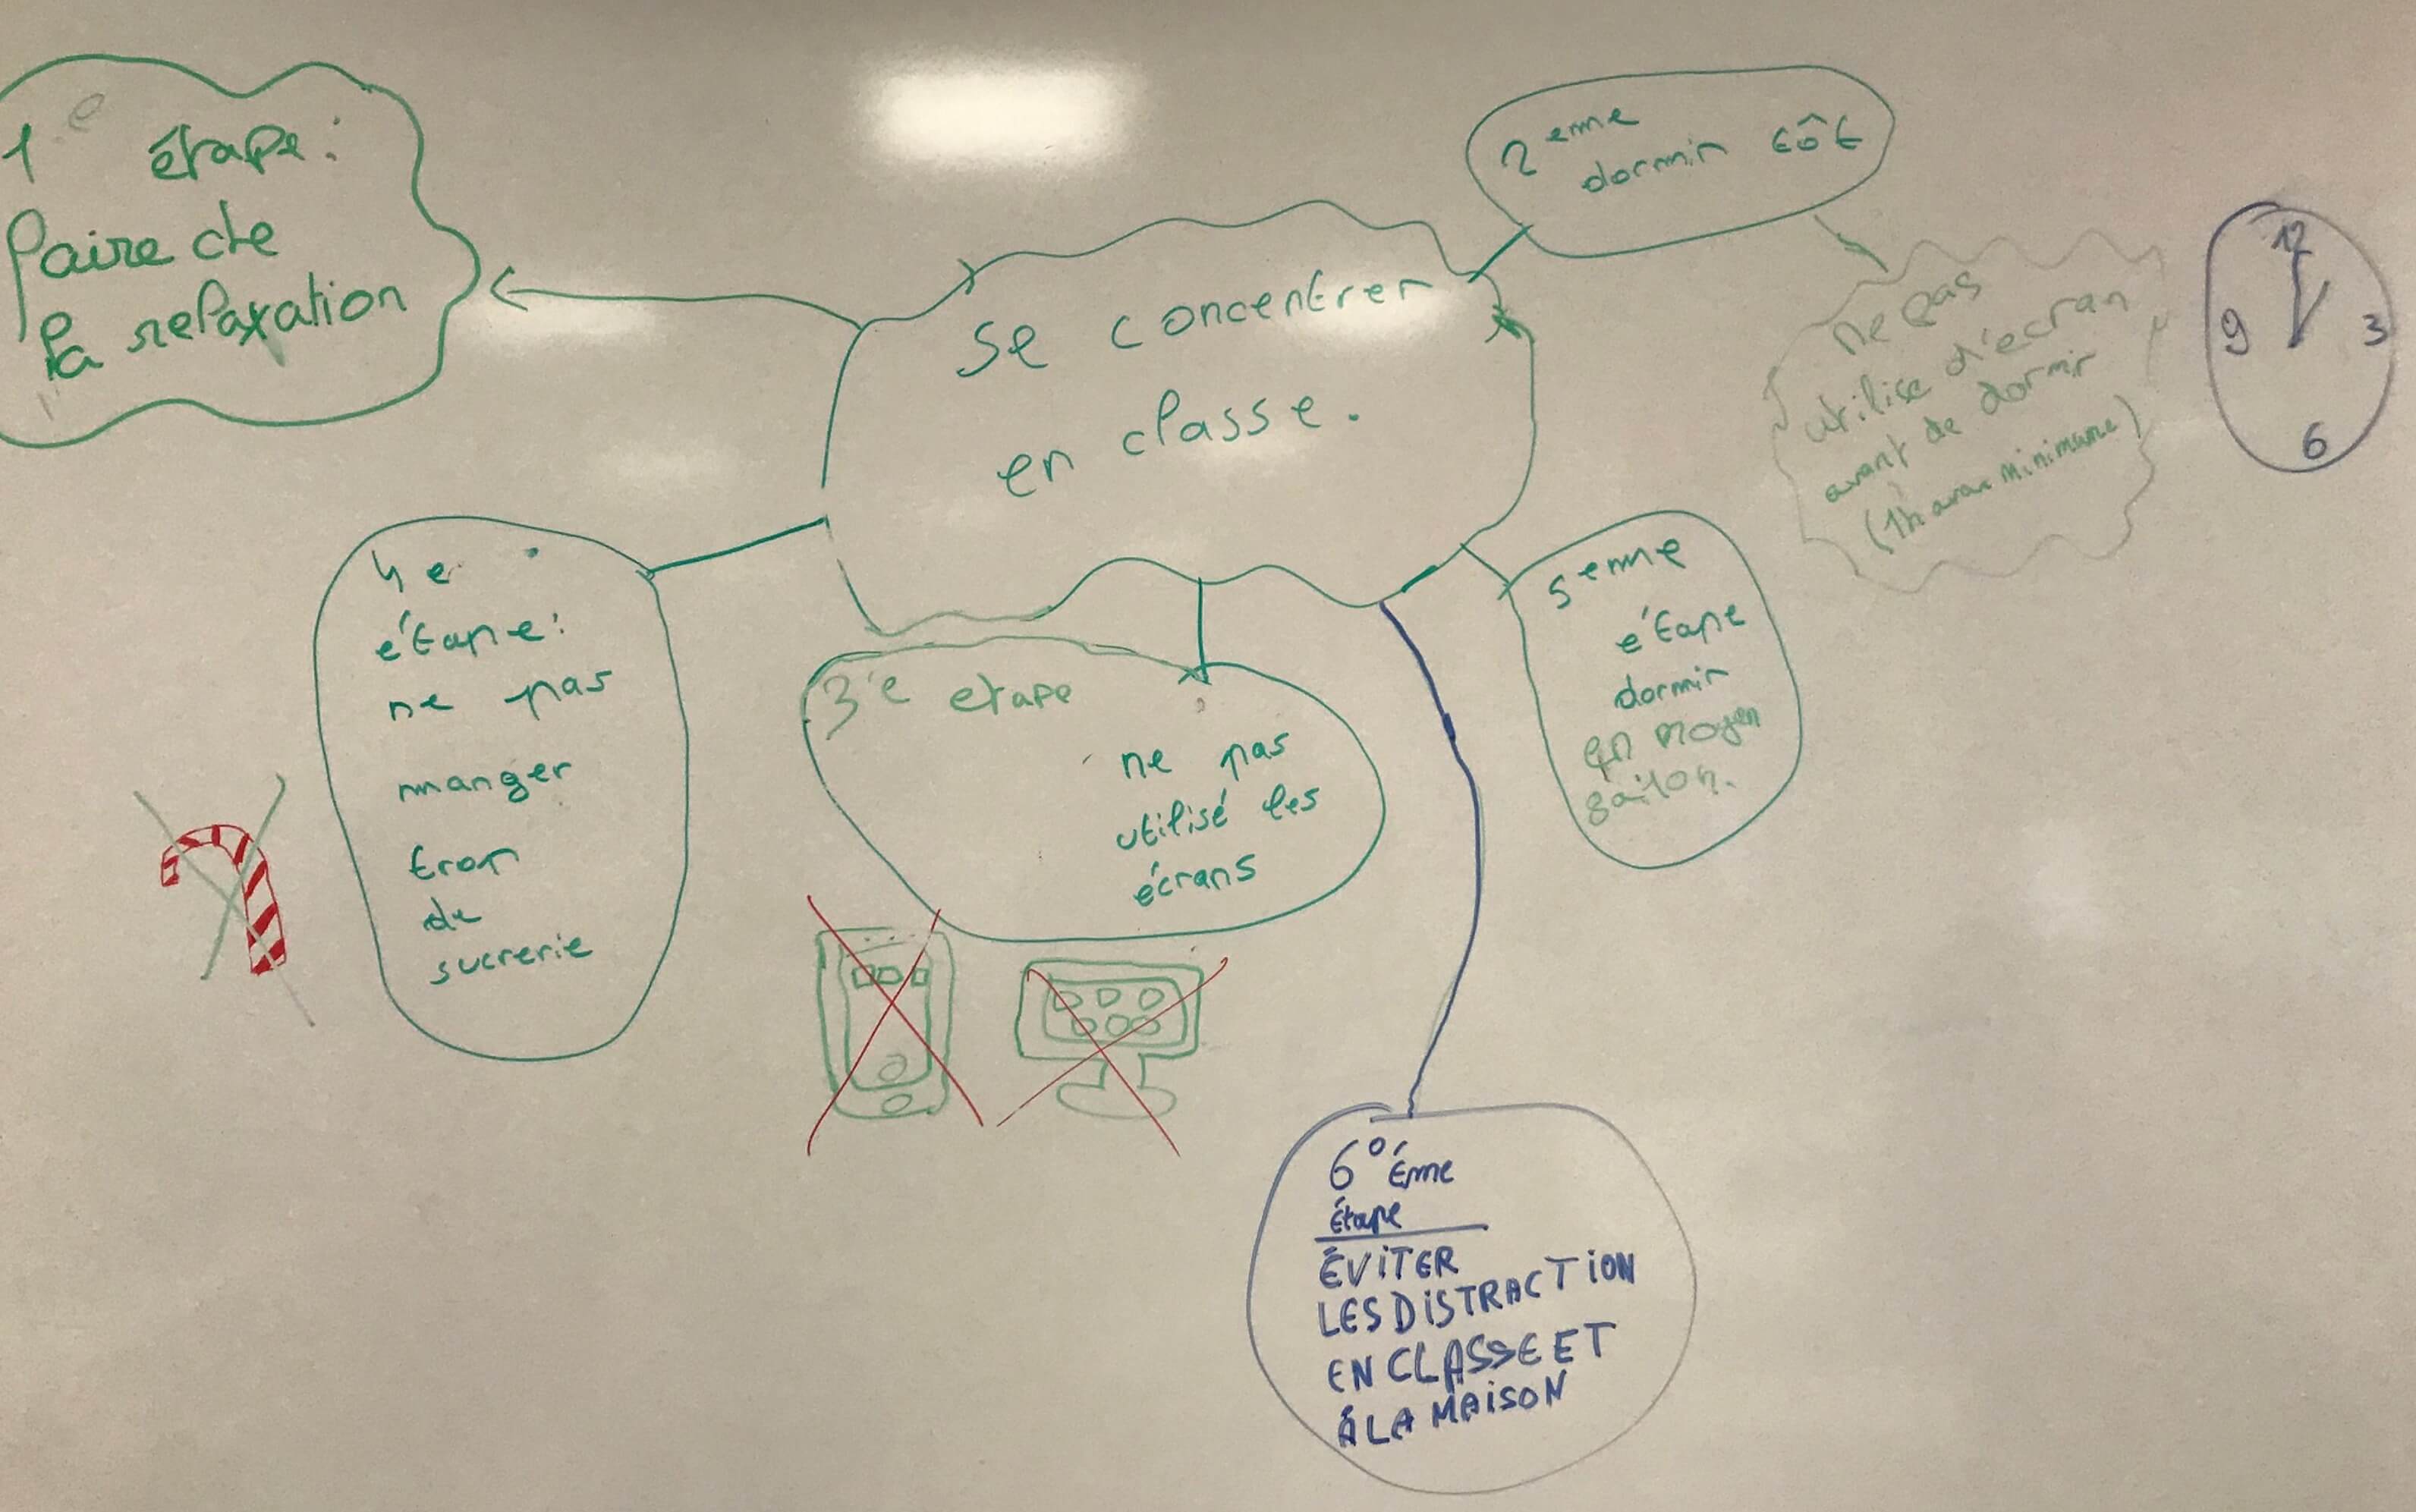 1e étape:
faire de
la relaxation
2eme
dormir tôt
ne pas
utilise d'ecran
avant de dormir
(1h avan minimume)
12
9 3
6
se concentrer
en classe.
4e
étape:
ne pas
manger
trop
de
sucrerie
3e etape
ne pas
utilisé les
écrans
5eme
étape
dormir
en moyen
6°éme
étape
ÉViTER
LES DiSTRACTiON
EN CLASSE ET
À LA MAiSON